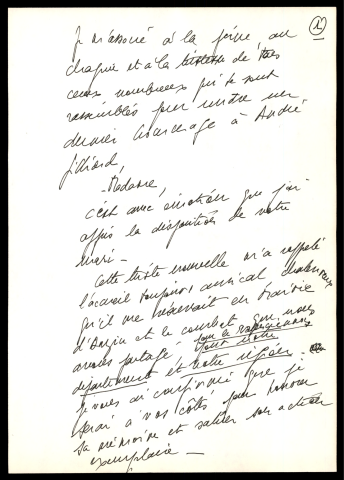 1
Je m'associe à la peine, au
chagrin et à la tristesse de tous
ceux nombreux qui se sont
rassemblés pour rendre un
dernier hommage à André
Gilliard,
- Madame,
c'est avec émotion que j'ai
appris la disparition de votre
mari -
Cette triste nouvelle m'a rappelé
l'accueil toujours amical chaleureux
qu'il me réservait en Mairie
d'Anjou et le combat que nous
avons partagé pour la reconnaissance
pour notre
département et notre région.
Je vous ai confirmé que je
serai à vos côtés pour honorer
sa mémoire et saluer son action
exemplaire -